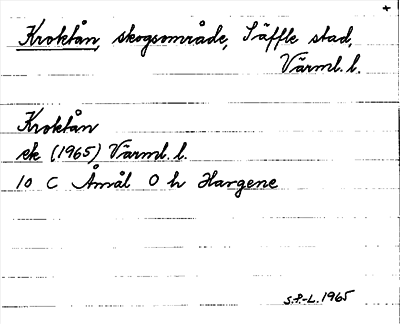 +
Kroktån, skogsområde, Säffle stad,
Värml. l.
Kroktån
ek (1965) Värml. l.
10 C Åmål O h Hargene
S.P.-L. 1965